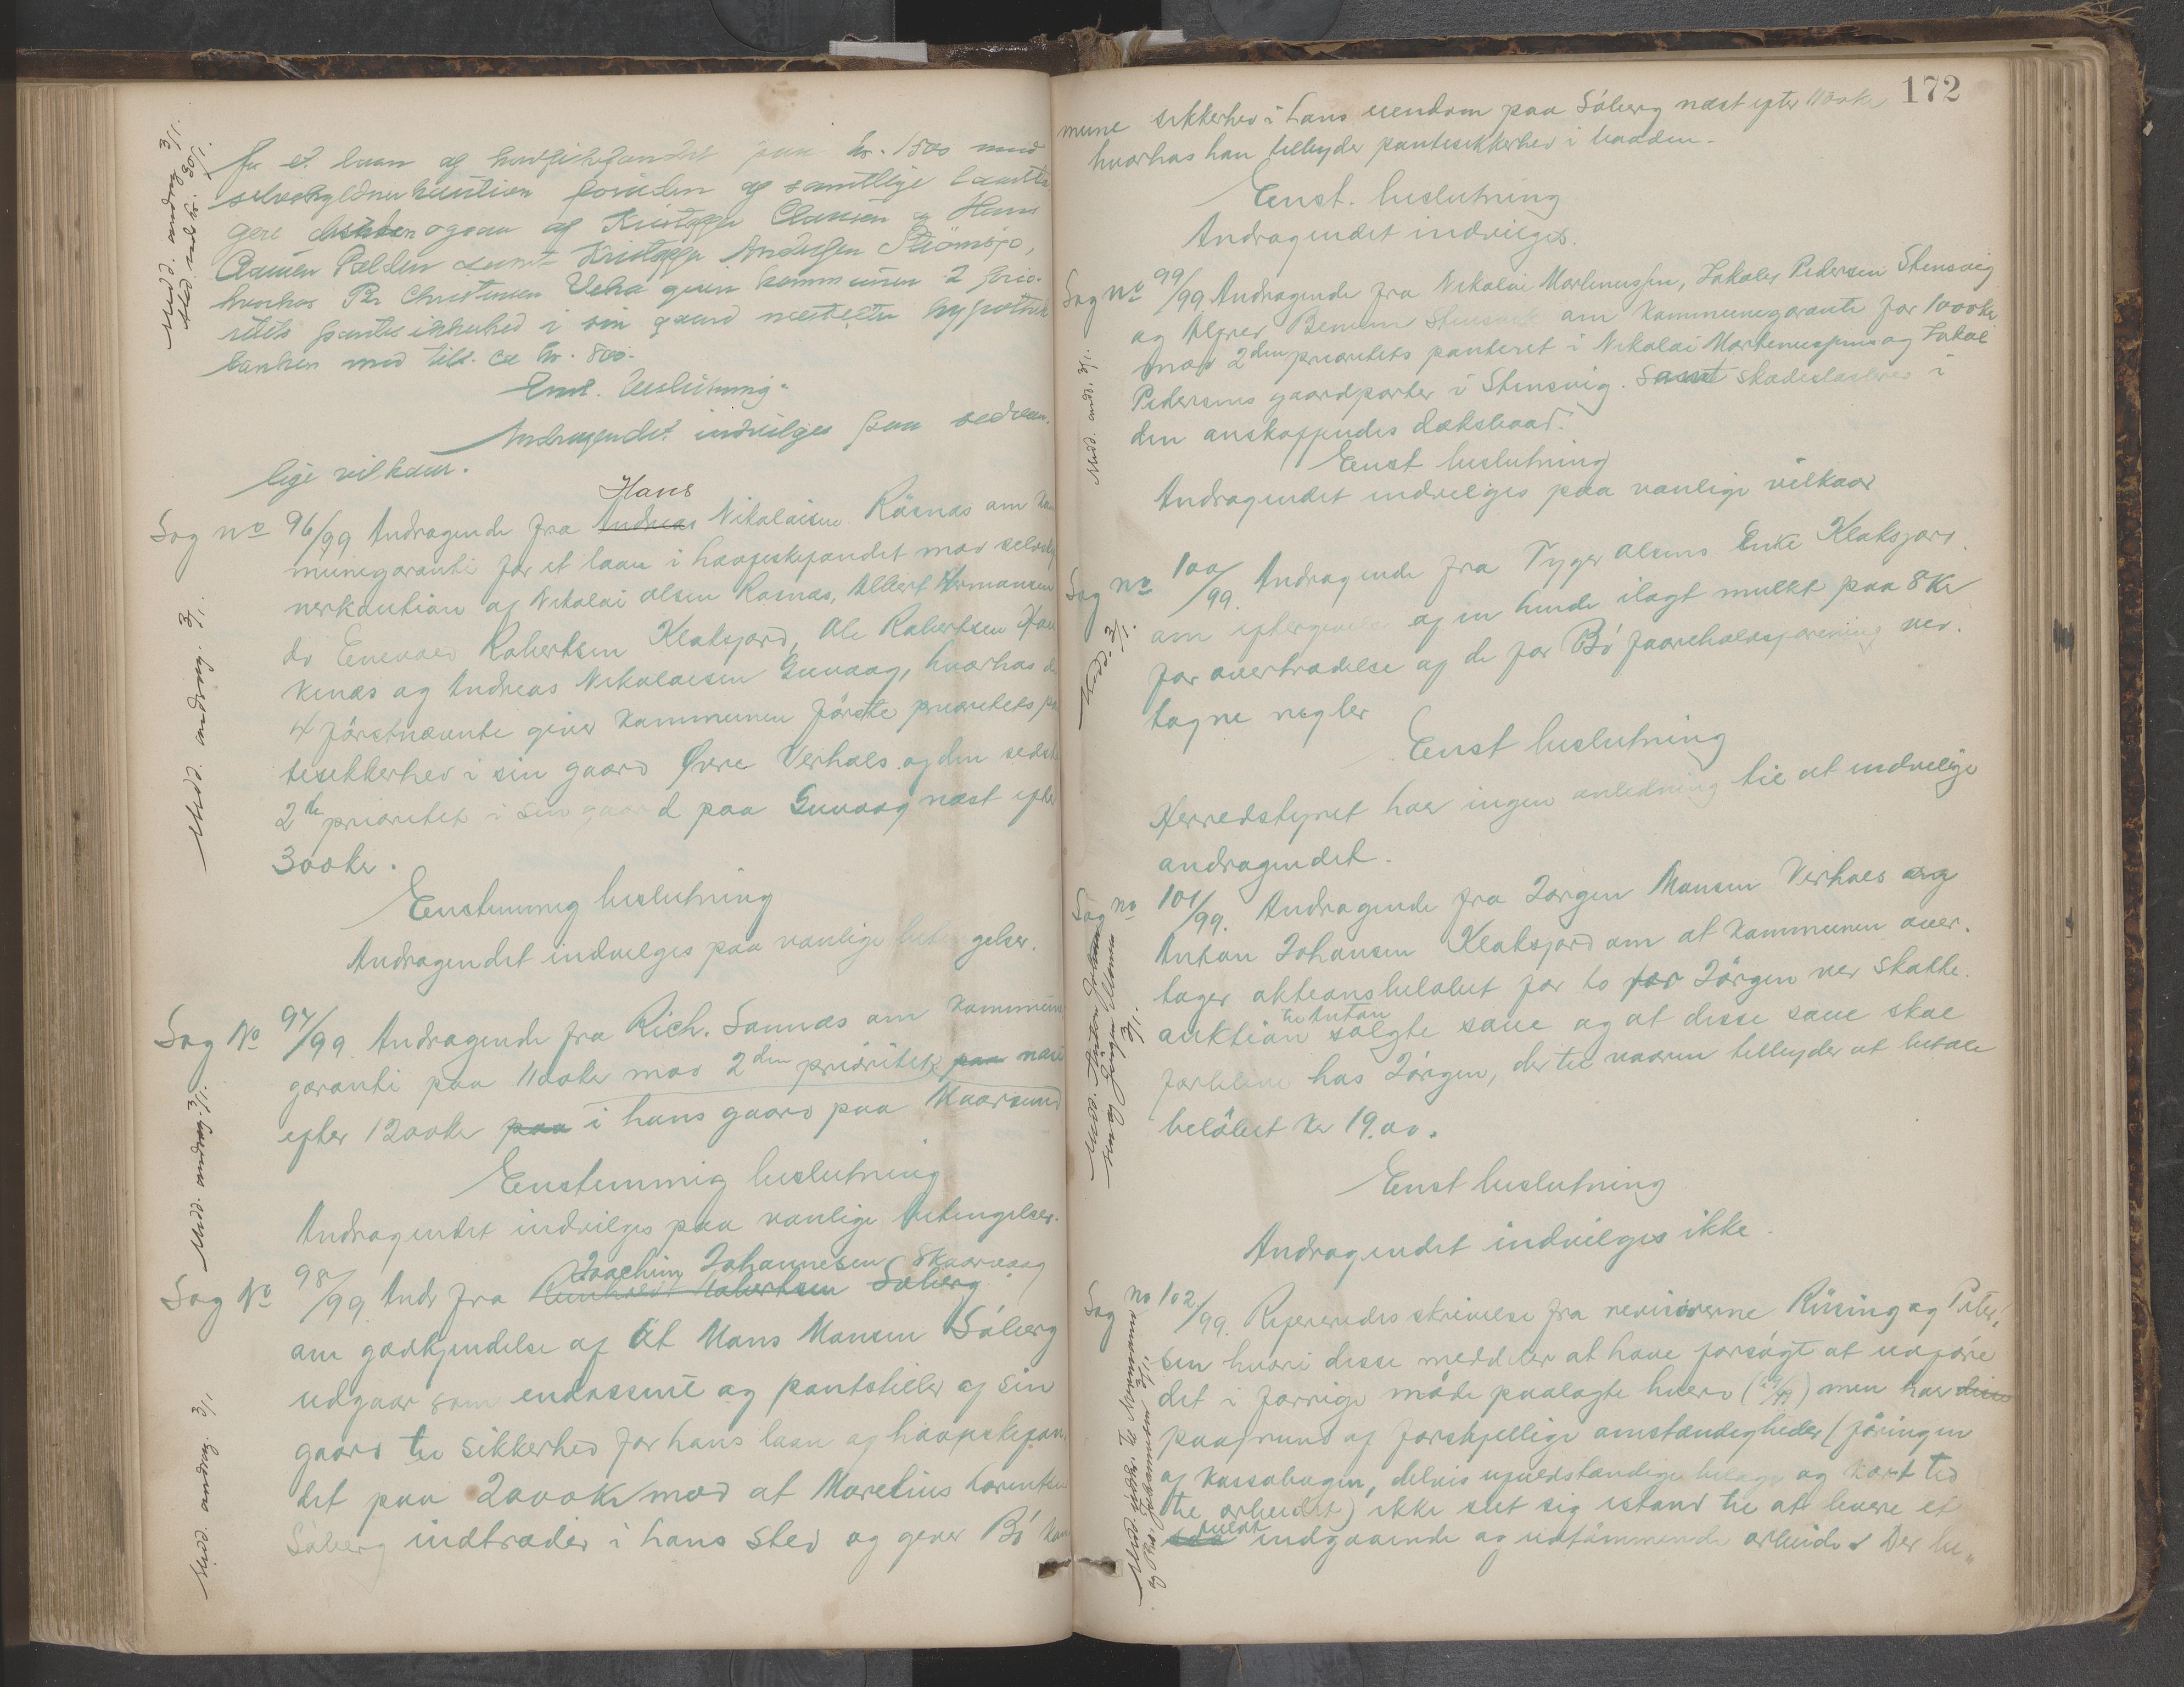 fra et laan af havfiskefondet paa kr. 1500 mod
selvskyldnerkaution foruden af samtlige laanta
gere desuden ogsaa af Kristoffer Clausen og Hans
Clausen Pollen samt Kristoffer Andersen Strömsjo,
hvorhos Pr Christensen Veha given kommunen 2 prio-
ritets pantesikkerhed i sin gaard næstefter hypothek
banken med tilst. ca kr. 800.
Enst. beslutning.
Andragendet indvilges paa sedvan-
lige vilkaar.
Hans
Sag No 96/99 Andragende fra Andreas Nikolaisen Råsnæs om kom
munegaranti for et laan i havfiskefondet mod selvskyld
nerkaution af Nikolai Olsen Rasnæs, Albert Hermansen
do Enevold Robertsen Klaksjord, Ole Robertsen
kenæs og Andreas Nikolaisen Guvaag, hvorhos de
4 förstnævnte giver kommunen förste prioritets pan
tesikkerhed i sin gaard Øvre Verhals og den sidste
2de prioritet i sin gaard paa Guvaag næst efter
300kr.
Enstemmig beslutning
Andragendet indvilges paa vanlige betingelser.
Sag No 97/99 Andragende fra Rich. Sannæs om kommune
garanti paa 1100kr mod 2den prioritet paa næst
efter 1200kr paa i hans gaard paa Kaarsund
Enstemmig beslutning
Andragendet indvilges paa vanlige betingelser.
Joachim Johannesen Skaarvaag
Sag No 98/99 Andr fra Robertsen Søberg
om godkjendelse af at Hans Hansen Söberg
udgaar som endossent og pantstiller af sin
gaard til sikkerhed for hans laan af havfiskefon
det paa 2000k mod at Marelius Lorentsen
Söberg indtræder i hans sted og giver Bö kom
Medd. andrag 3/1.
Medd. andrag. 3/1.
Medd. andrag. 3/1.
Medd. andrag. 3/1
172
mune sikkerhed i hans eiendom paa Söberg næst efter 1100kr
hvorhos han tilbyder pantesikkerhed i baaden.
Enst. beslutning
Andragendet indvilges.
Sag No 99/99 Andragende fra Nikolai Martinussen, Jakob Pedersen Stensvig
og Benum om kommunegaranti for 1000kr
mod 2den prioritets panteret i Nikolai Martinussens og Jakob
Pedersens gaardparter i Stensvig. Samt skadeslösbrev i
den anskaffendes dæksbaad.
Enst beslutning
Andragendet indvilges paa vanlige vilkaar
Sag No 100/99. Andragende fra Tyger Olsens Enke Klaksjord
om eftergivelse af en hende ilagt mulkt paa 8kr
for overtrædelse af de for Bö faareholdsforening ved-
tagne regler
Enst beslutning
Herredstyret har ingen anledning til at indvilge
andragendet.
Sag no 101/99. Andragende fra Jörgen Monsen Verhals og
Anton Johansen Klaksjord om at kommunen over-
tager aktionsbelöbet for to for Jörgen ved skatte-
til Anton
auktion solgte saue og at disse saue skal
forblive hos Jörgen, der til vaaren tilbyder at betale
belöbet kr 19.00.
Enst beslutning
Andragendet indvilges ikke.
Sag no 102/99. Refereredes skrivelse fra revisorerne Rüsing og Peter-
sen hvori disse meddeler at have forsögt at udföre
det i forrige möde paalagte hverv men har disse
paagrund af forskjellige omstændigheder (föringen
af kassabogen, delvis ufuldstændige bilage og kort tid
til arbeidet) ikke seet sig istand til at levere et
fuldt
indgaaende og udtömmende arbeide. Der be-
Medd. andr. 3/1.
Medd. 3/1.
Medd. Anton Johansen
og Jörgen Monsen 3/1.